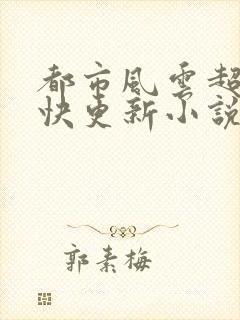 都市風雲超
快更新小說
郭素梅